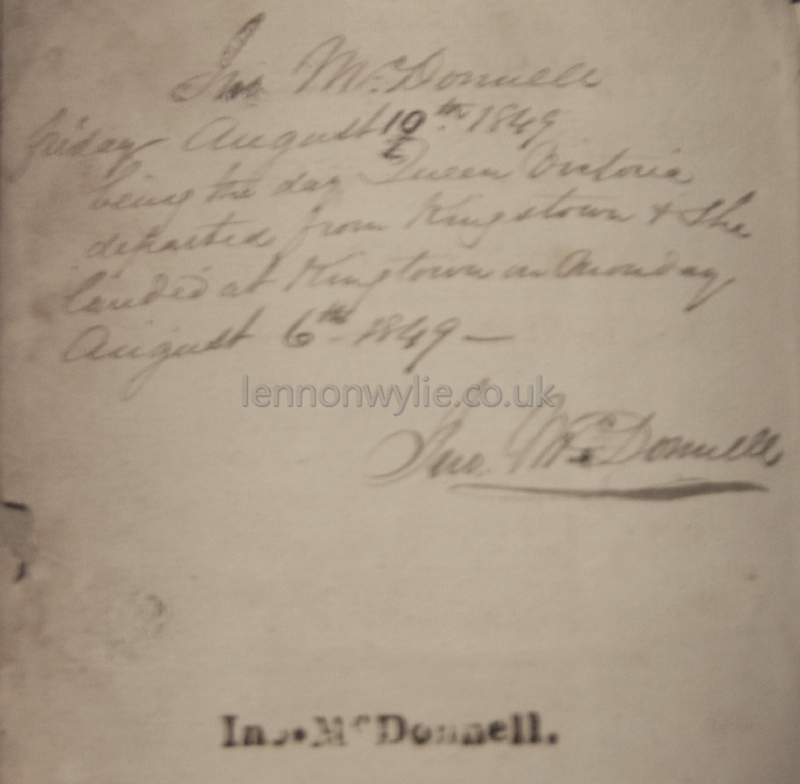 Jno McDonnell
friday August 10th 1849
being the day Queen Victoria
departed from Kingstown & she
landed at Kingtown on Monday
August 6th 1849 —
lennonwylie.co.uk
Jno. McDonnell
Jno. McDonnell.